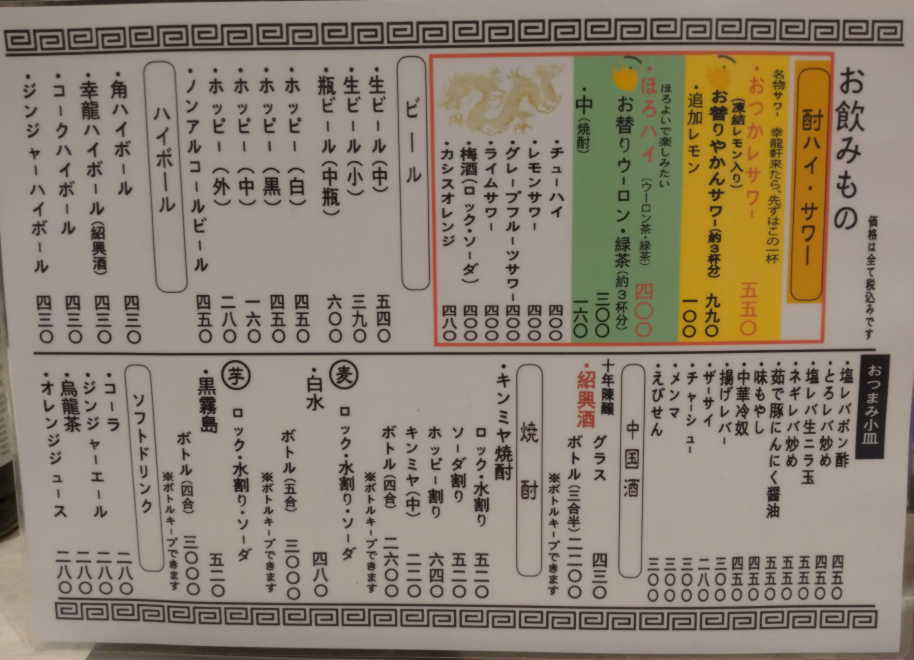 お飲みもの
価格は全て税込みです
酎ハイ・サワー
名物サワー 幸龍軒来たら、先ずはこの一杯
・おつかレサワー 五五〇
(凍結レモン入り)
・お替りやかんサワー(約3杯分) 九九〇
・追加レモン 一〇〇
ほろよいで楽しみたい
・ほろハイ(ウーロン茶・緑茶) 四〇〇
お替りウーロン・緑茶(約3杯分) 三〇〇
・中(焼酎) 一六〇
・チューハイ 四〇〇
・レモンサワー 四〇〇
・グレープフルーツサワー 四〇〇
・ライムサワー 四〇〇
・梅酒(ロック・ソーダ) 四〇〇
・カシスオレンジ 四八〇
ビール
・生ビール(中) 五四〇
・生ビール(小) 三九〇
・瓶ビール(中瓶) 六〇〇
・ホッピー(白) 四五〇
・ホッピー(黒) 四五〇
・ホッピー(中) 一六〇
・ホッピー(外) 二八〇
・ノンアルコールビール 四五〇
ハイボール
・角ハイボール 四三〇
・幸龍ハイボール(紹興酒) 四三〇
・コークハイボール 四三〇
・ジンジャーハイボール 四三〇
おつまみ小皿
・塩レバポン酢 四五〇
・とろレバ炒め 四五〇
・塩レバ生ニラ玉 五五〇
・ネギレバ炒め 五五〇
・茹で豚にんにく醤油 五五〇
・味もやし 四五〇
・中華冷奴 四五〇
・揚げレバー 三〇〇
・ザーサイ 二八〇
・チャーシュー 三〇〇
・メンマ 三〇〇
・えびせん 三〇〇
中国酒
十年陳醸
・紹興酒 グラス 四三〇
ボトル(三合半) 二二〇〇
※ボトルキープできます
焼酎
・キンミヤ焼酎
ロック・水割り 五二〇
ソーダ割り 五二〇
ホッピー割り 六四〇
キンミヤ(中) 二二〇
ボトル(四合) 二六〇〇
※ボトルキープできます
麦 ロック・水割り・ソーダ
・白水 四八〇
ボトル(五合) 三〇〇〇
※ボトルキープできます
芋 ロック・水割り・ソーダ
・黒霧島 五二〇
ボトル(四合) 三〇〇〇
※ボトルキープできます
ソフトドリンク
・コーラ 二八〇
・ジンジャーエール 二八〇
・烏龍茶 二八〇
・オレンジジュース 二八〇